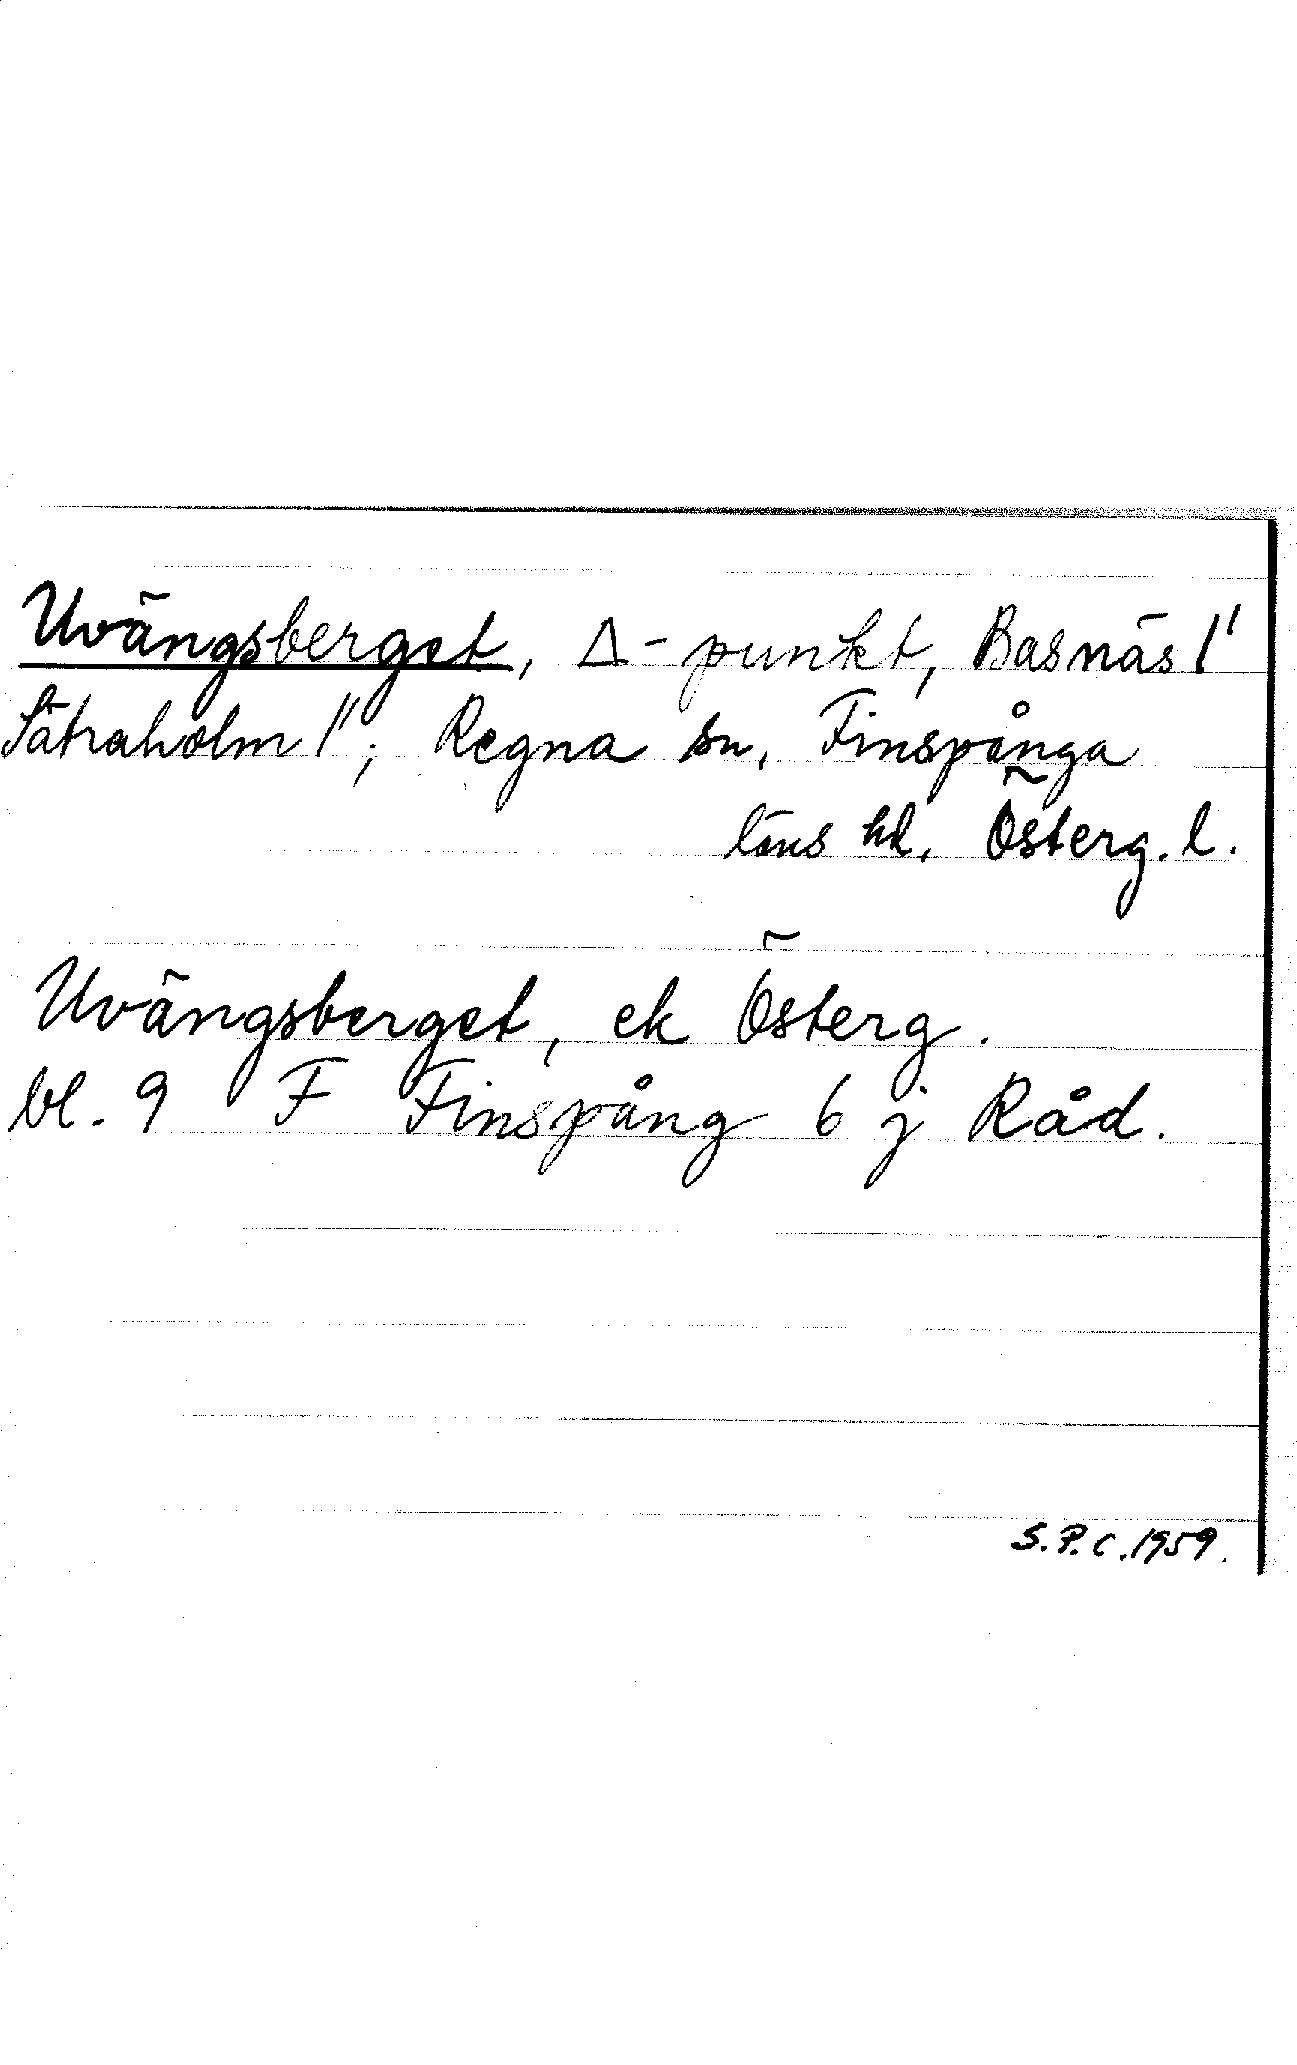 Uvängsberget, Δ-punkt, Basnäs 1'
Sätraholm 1"; Regna sn, Finspånga
läns hd, Österg. l.
Uvängsberget, ek Österg.
bl. 9 F Finspång 6 j Råd.
S.P.C. 1959.